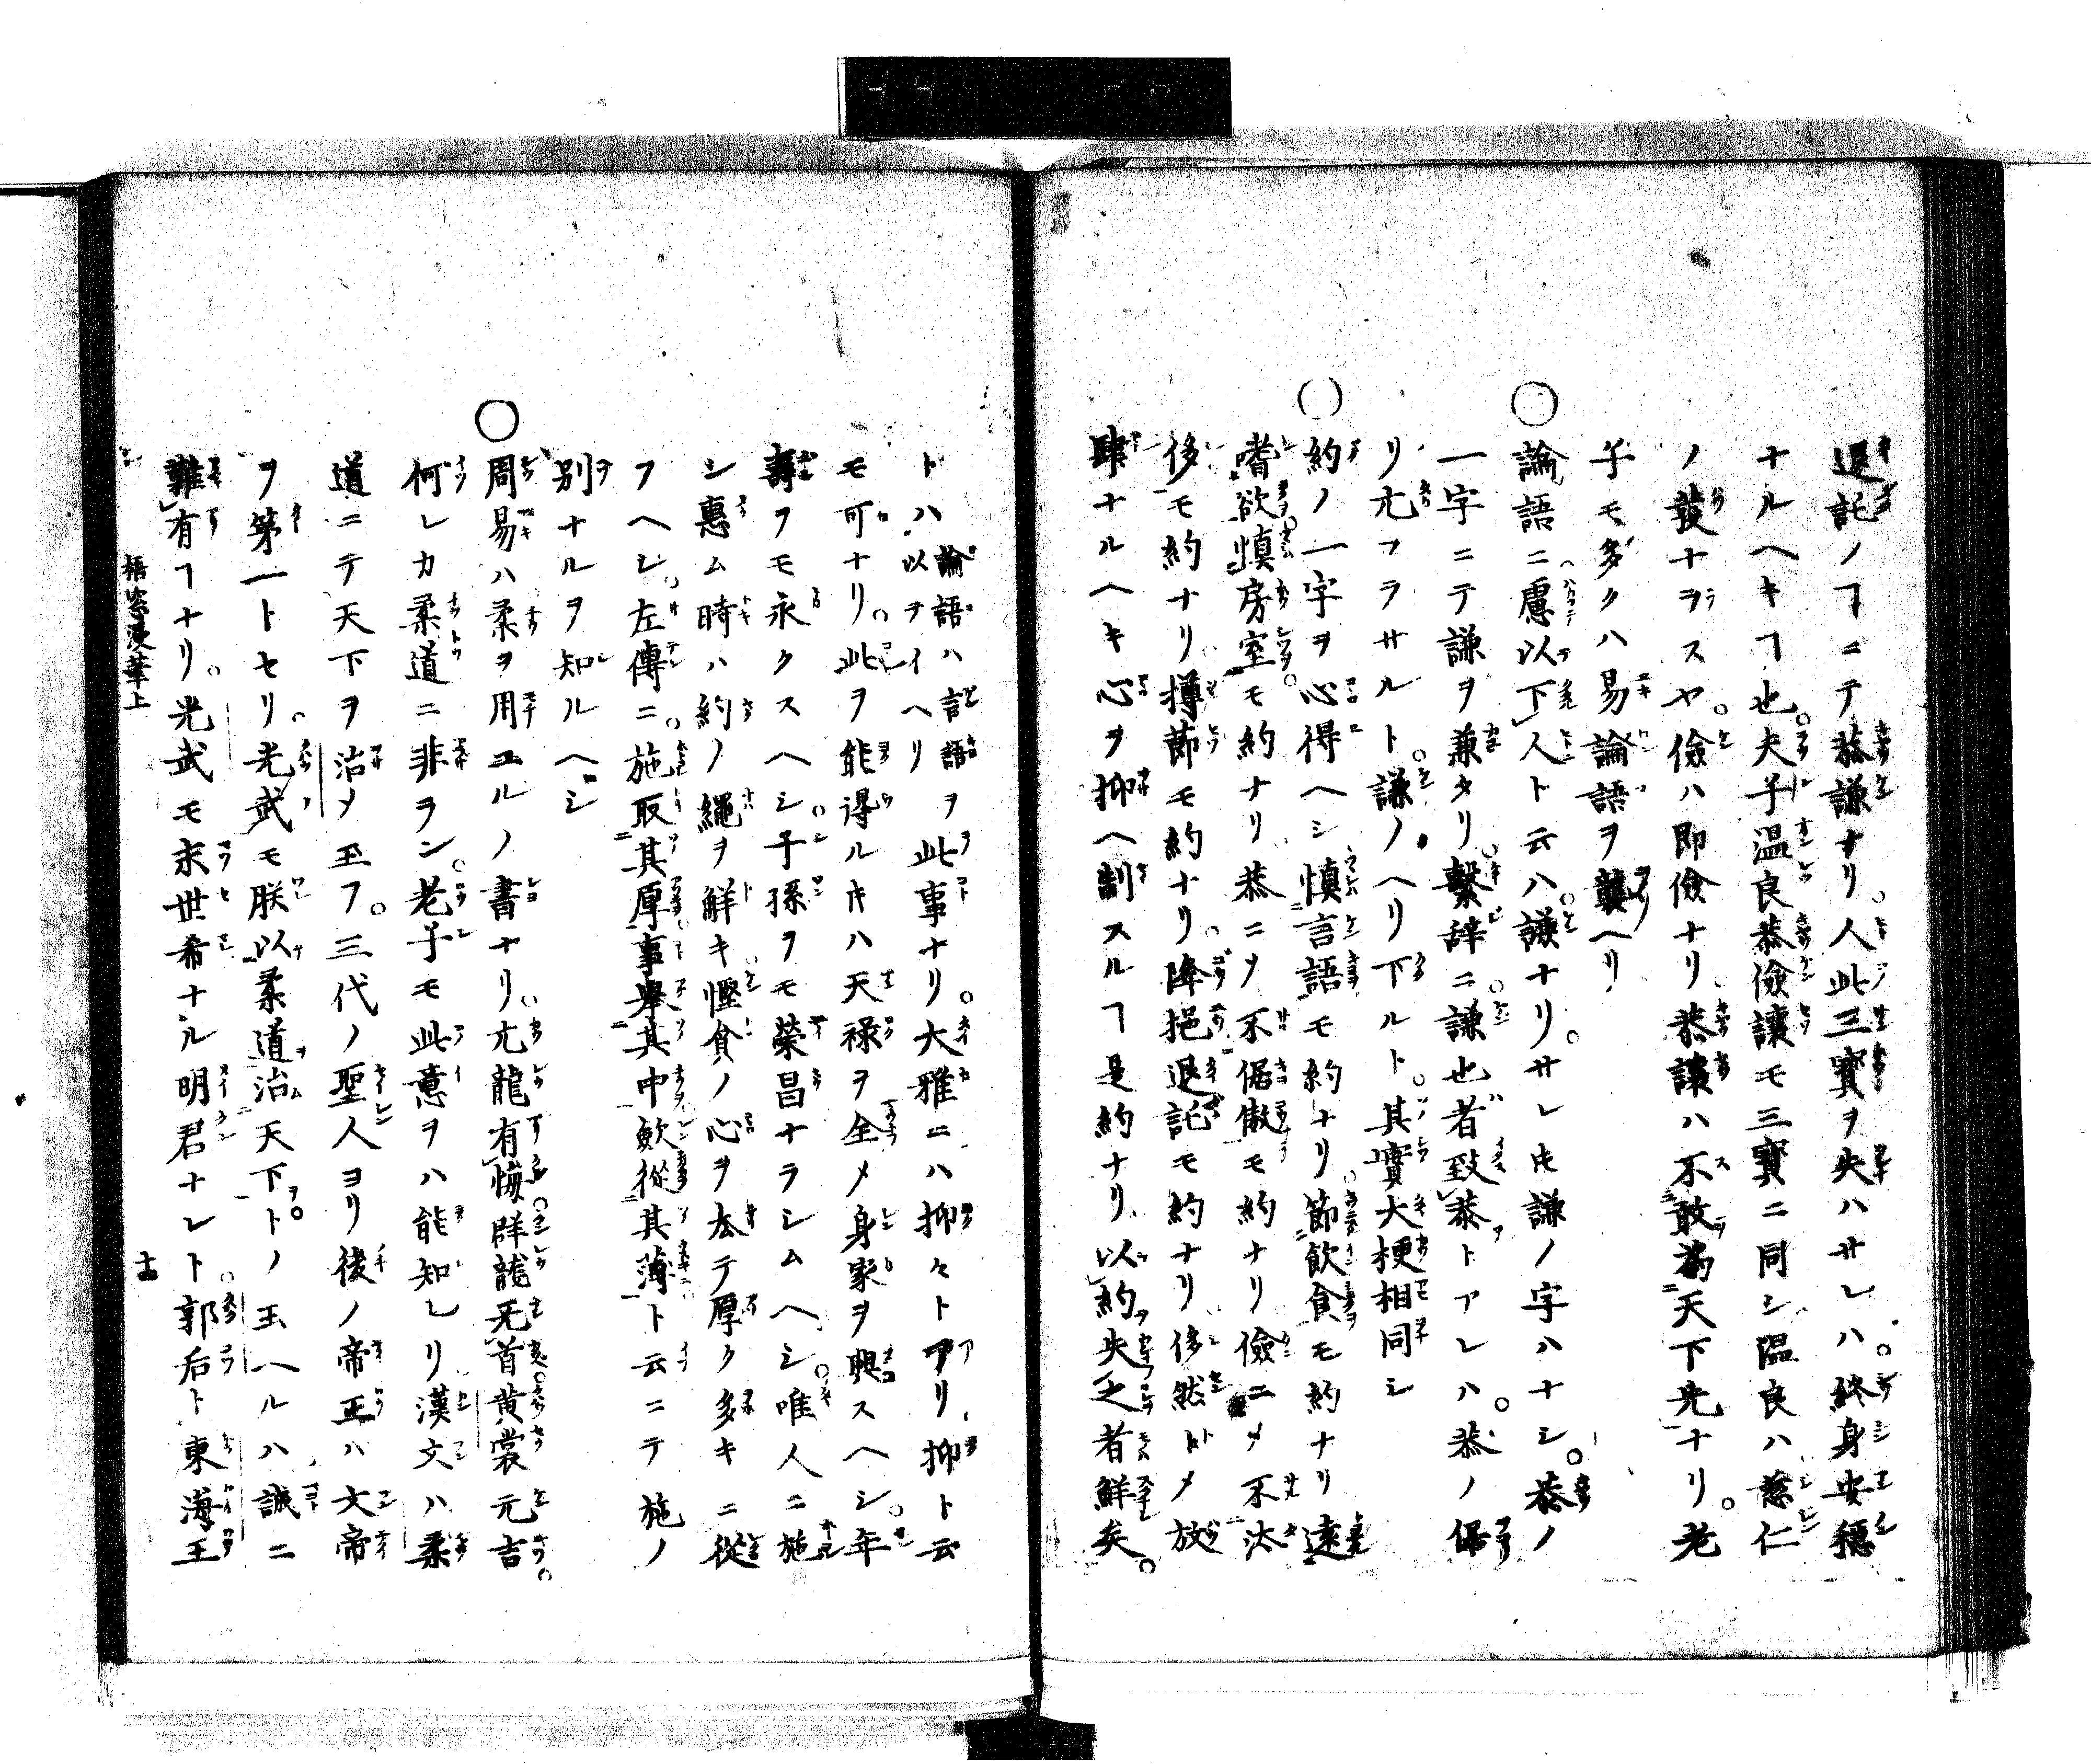 退託ノヿニテ恭謙ナリ。人此三寳ヲ失ハサレハ。終身安穏
ナルヘキヿ也。夫子温良恭儉讓モ三寳ニ同シ温良ハ慈仁
ノ發ナラスヤ。儉ハ即儉ナリ恭讓ハ不敢為天下先ナリ。老
子モ多クハ易論語ヲ襲ヘリ
○論語ニ慮以下人ト云ハ。謙ナリ。サレ𪜈謙ノ字ハナシ。恭ノ
一字ニテ謙ヲ兼タリ。繫辞ニ謙也者致恭トアレハ。恭ノ
リ亢フラサルト。謙ノヘリ下ルト。其實大梗相同シ
○約ノ一字ヲ心得ヘシ慎言語モ約ナリ。節飲食モ約ナリ遠
嗜欲慎房室モ約ナリ恭ニメ不倨傲モ約ナリ儉ニメ不汰
侈モ約ナリ。撙節モ約ナリ。降挹退託モ約ナリ侈然トメ放
肆ナルヘキ心ヲ抑ヘ制スルヿ是約ナリ以約失之者鮮矣。
トハ論語ハ言語ヲ以ヲイヘリ此事ナリ。大雅ニハ抑々トアリ抑ト云
モ可ナリ。此ヲ能得ルキハ天禄ヲ全メ身家ヲ興スヘシ。年
壽ヲモ永クスヘシ。子孫ヲモ榮昌ナラシムヘシ。唯人ニ施
シ惠ム時ハ約ノ縄ヲ解キ慳貪ノ心ヲ去テ厚ク多キニ從
フヘシ。左傳ニ。施取其厚事擧其中歛從其薄ト云ニテ施ノ
別ナルヲ知ルヘシ
○周易ハ柔ヲ用ユルノ書ナリ。亢龍有悔。羣龍无首。黄裳元吉。
何レカ柔道ニ非ラン。老子モ此意ヲハ能知レリ漢文ハ柔
道ニテ天下ヲ治メ玉フ。三代ノ聖人ヨリ後ノ帝王ハ文帝
ヲ第一トセリ。光武モ朕以柔道治天下。トノ玉ヘルハ誠ニ
難有ヿナリ。光武モ末世希ナル明君ナレト郭后ト東海王
梧窓漫筆上
十四